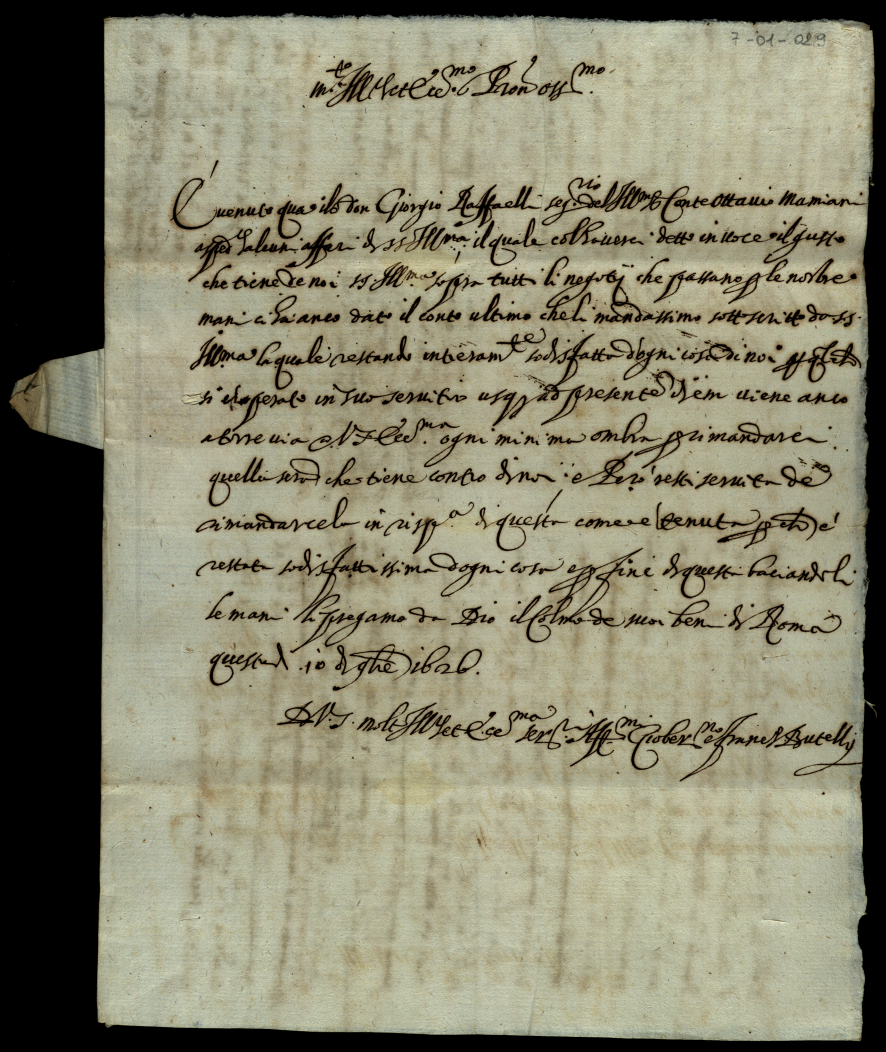 7-01-029
m.to Ill.re et Ecc.mo Pron oss.mo
È venuto qua il s.r don Giorgio Raffaelli seg.rio del Ill.mo s.r Conte Ottavio Mamiani
alcuni affari di SS Ill.ma, il quale col haverci detto in voce il gusto
che tiene de noi SS Ill.ma sopra tutti li negotij che passano p le nostre
mani ci ha anco dato il conto ultimo che li mandassimo sottoscritto da SS.
Ill.ma la quale restando interam.te sodisfatta d'ogni cosa di noi
si è operato in suo servitio usq ad presentem diem viene anco
a torre via a V S Ecc.ma ogni minima ombra p rimandarci
quella che tiene contro di noi: e Però resti servita de
rimandarcela in risp.a di questa come è tenuta p che è
restata sodisfattissima d ogni cosa e p fine di questa baciandoli
le mani li pregamo da Dio il Colmo de suoi beni di Roma
questo dì 10 di 9bre 1626.
D V. S. molt Ill.re et Ecc.ma ser.ri Aff.mi Giober.no e Franc.o Butelli